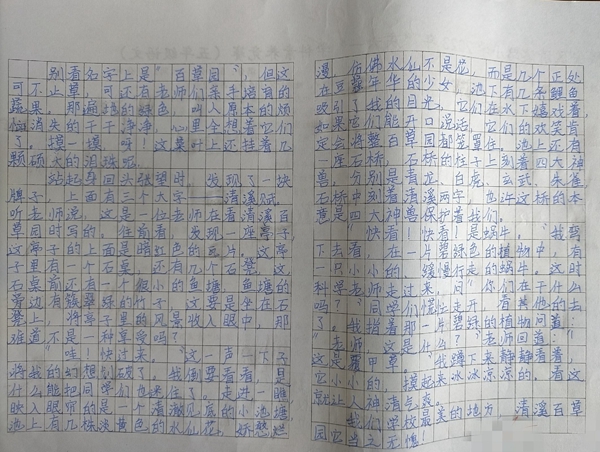 别看名字上是“百草园”，但这
可不止草，可还有老师们亲手培育的
蔬果。那遍搭的绿色，叫人原本的烦
恼消失的干干净净，心里全想着它们
了。摸一摸，呀！这菜叶上还挂着几
颗硕大的泪珠呢。
站起身回头张望时，发现了一块
牌子，上面有三个大字——清溪赋，
听老师说，这是一位老师在看清溪百
草园时写的。往前看，发现一座亭子，
这亭子的上面是暗红色的瓦片。这亭
子里有一个石桌，还有几个石凳，这
石桌前还有一个很小的鱼塘，鱼塘的
旁边有簇翠绿的竹子，这要是坐在石
凳上，将亭子里的风景收入眼中，那
难道不是一种享受吗？
“哇！快过来。”这一声一下子
将我的幻想划破了。我倒要看看，是
什么能把同学们也迷住了。走进一瞧
映入眼帘的是一个清澈见底的小池塘
池上有几株淡黄色的水仙花，娇憨烂
漫，仿佛水仙不是花，而是几个正处
在豆蔻年华的少女。池下有几条鲤鱼
吸引了我的目光，它们在水下嬉戏着，
如果它们能开口说话，它们的欢笑肯
定会将整百草园都笼罩住。池上还有
一座石桥，石桥的柱子上刻着四大神
兽，分别是青龙、白虎、玄武、朱雀
石桥中刻着清溪两字，也许这桥的本
意是四大神兽保护着我们。
“快看！快看！是蜗牛。”我弯
下去看，在一片碧绿色的植物中，有
一只小小的，缓慢行走的蜗牛。这时
科学老师走过来问“你们在干什么
吗？”同学们慌忙走开，看其他的去
了。我指着那一片碧绿的植物问道：
“老师，这是什么？”老师回道：“
这是覆甲草。”我蹲下来静静看着，
它小小的，摸起来冰冰凉凉的。看这
就让人神清气爽。
我们学校最美的地方，清溪百草
园它当之无愧！